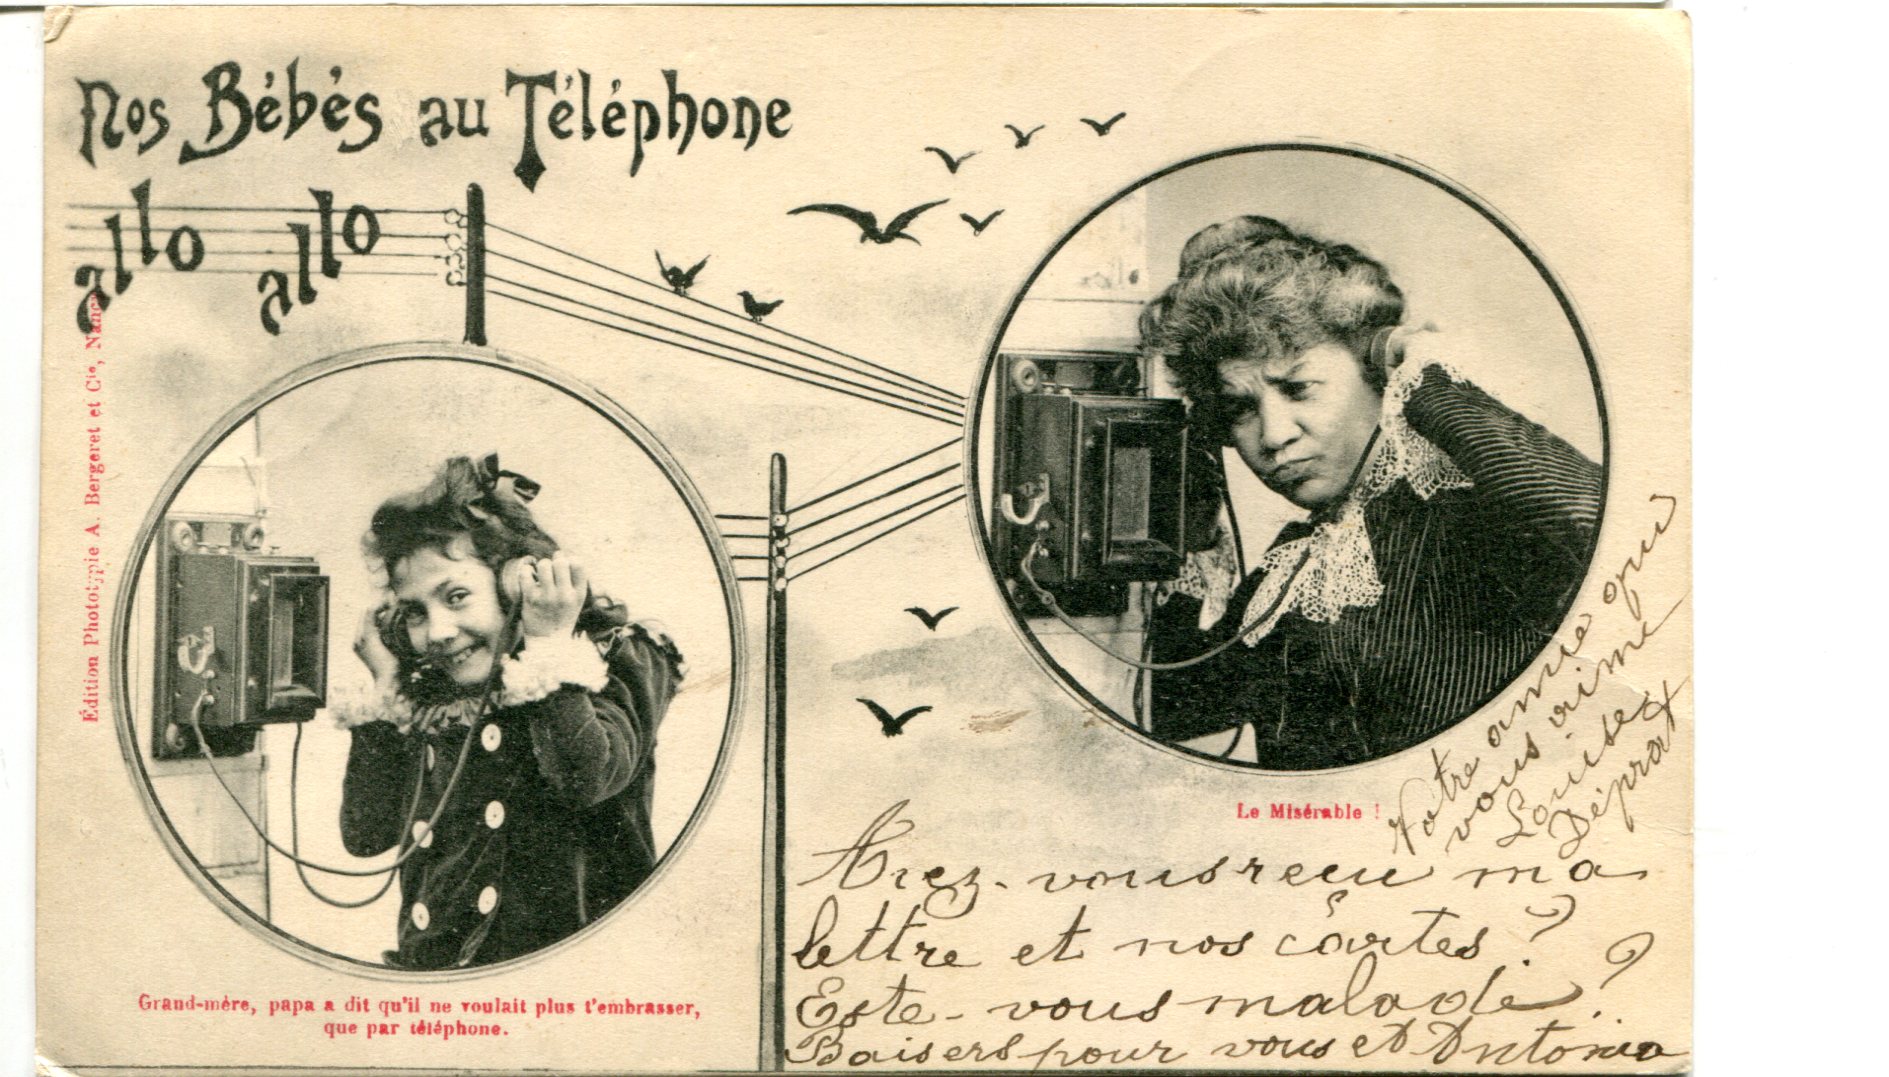 Nos Bébés au Téléphone
allo allo
Édition Phototypie A. Bergeret et Cie, Nancy
Grand-mère, papa a dit qu'il ne voulait plus t'embrasser,
que par téléphone.
Le Misérable !
Avez-vous reçu ma
lettre et nos cartes ?
Este-vous malade ?
Baisers pour vous et Antonia
Votre amie qui
vous aime
Louise
Déprat